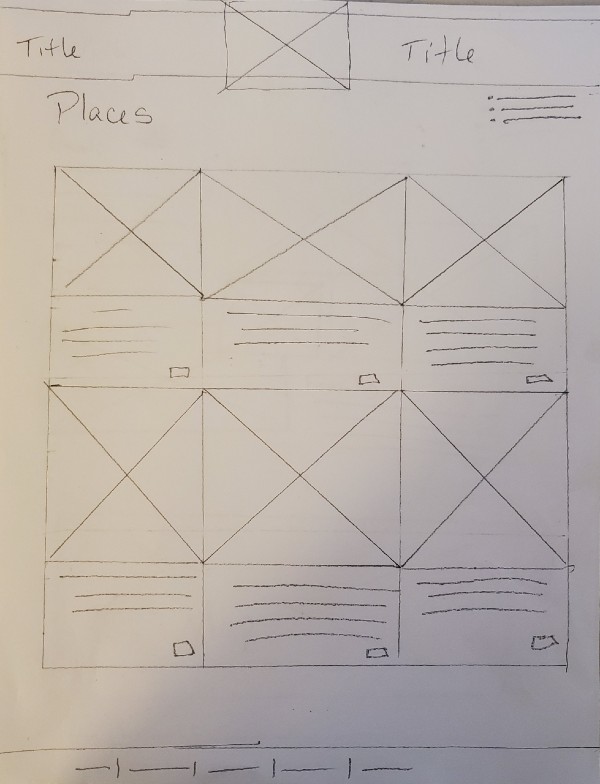 Title
Title
Places